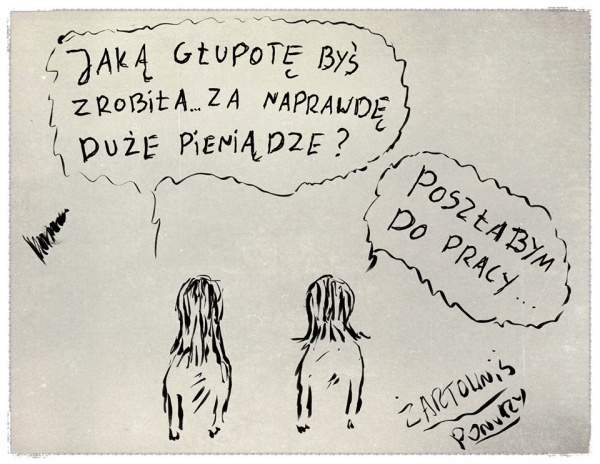 JAKĄ GŁUPOTĘ BYŚ
ZROBIŁA... ZA NAPRAWDĘ
DUŻE PIENIĄDZE?
POSZŁABYM
DO PRACY...
ŻARTOWNIŚ
PONURY